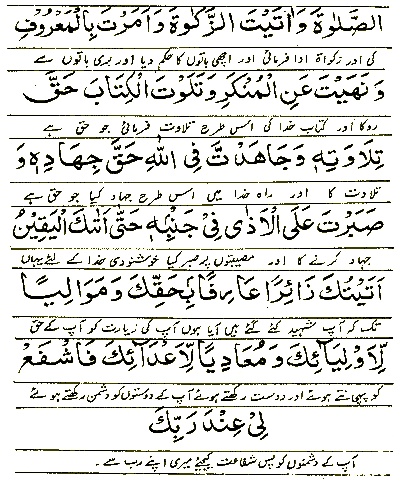 الصَّلٰوةَ وَاٰتَيْتَ الزَّكٰوةَ وَاَمَرْتَ بِالْمَعْرُوْفِ
کی اور زکواة ادا فرمائی اور اچھی باتوں کا حکم دیا اور بری باتوں سے
وَ نَهَيْتَ عَنِ الْمُنْكَرِ وَتَلَوْتَ الْكِتَابَ حَقَّ
روکا اور کتاب خدا کی اس طرح تلاوت فرمائی جو حق ہے
تِلَاوَتِهٖ وَجَاهَدْتَّ فِی اللهِ حَقَّ جِهَادِهٖ وَ
تلاوت کا اور راہ خدا میں اس طرح جہاد کیا جو حق ہے
صَبَرْتَ عَلَی الْاَذٰی فِیْ جَنْبِهٖ حَتّٰی اَتٰكَ الْيَقِيْنُ
جہاد کرنے کا اور مصیبتوں پر صبر کیا خوشنودی خدا کے لئے یہاں
اَتَيْتُكَ زَائِرًا عَارِفًا بِحَقِّكَ وَ مَوَالِيًا
تک کہ آپ شہید کئے گئے میں آیا ہوں آپ کی زیارت کو آپ کے حق
لِاَوْلِيَائِكَ وَ مُعَادِيًا لِاَعْدَآئِكَ فَاشْفَعْ
کو پہچانتے ہوئے اور دوست رکھتے ہوئے آپ کے دوستوں کو دشمن رکھتے ہوئے
لِیْ عِنْدَ رَبِّكَ
آپ کے دشمنوں کو پس شفاعت کیجئے میری اپنے رب سے ۔